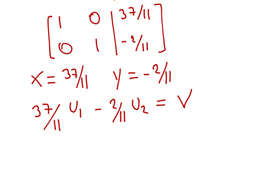 [ 1 0 | 37/11
0 1 | -2/11 ]
x = 37/11 y = -2/11
37/11 U₁ - 2/11 U₂ = V